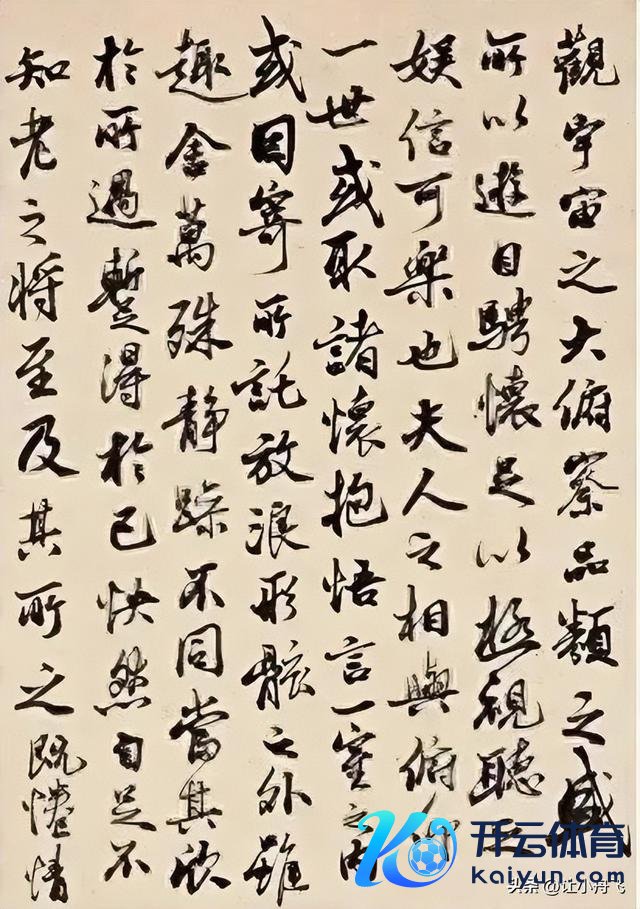 觀宇宙之大俯察品類之盛
所以遊目騁懷足以極視聽之
娛信可樂也夫人之相與俯仰
一世或取諸懷抱悟言一室之內
或因寄所託放浪形骸之外雖
趣舍萬殊靜躁不同當其欣
於所遇暫得於己快然自足不
知老之將至及其所之既惓情
开云体育
kaiyun.com
头条 @让小丹飞